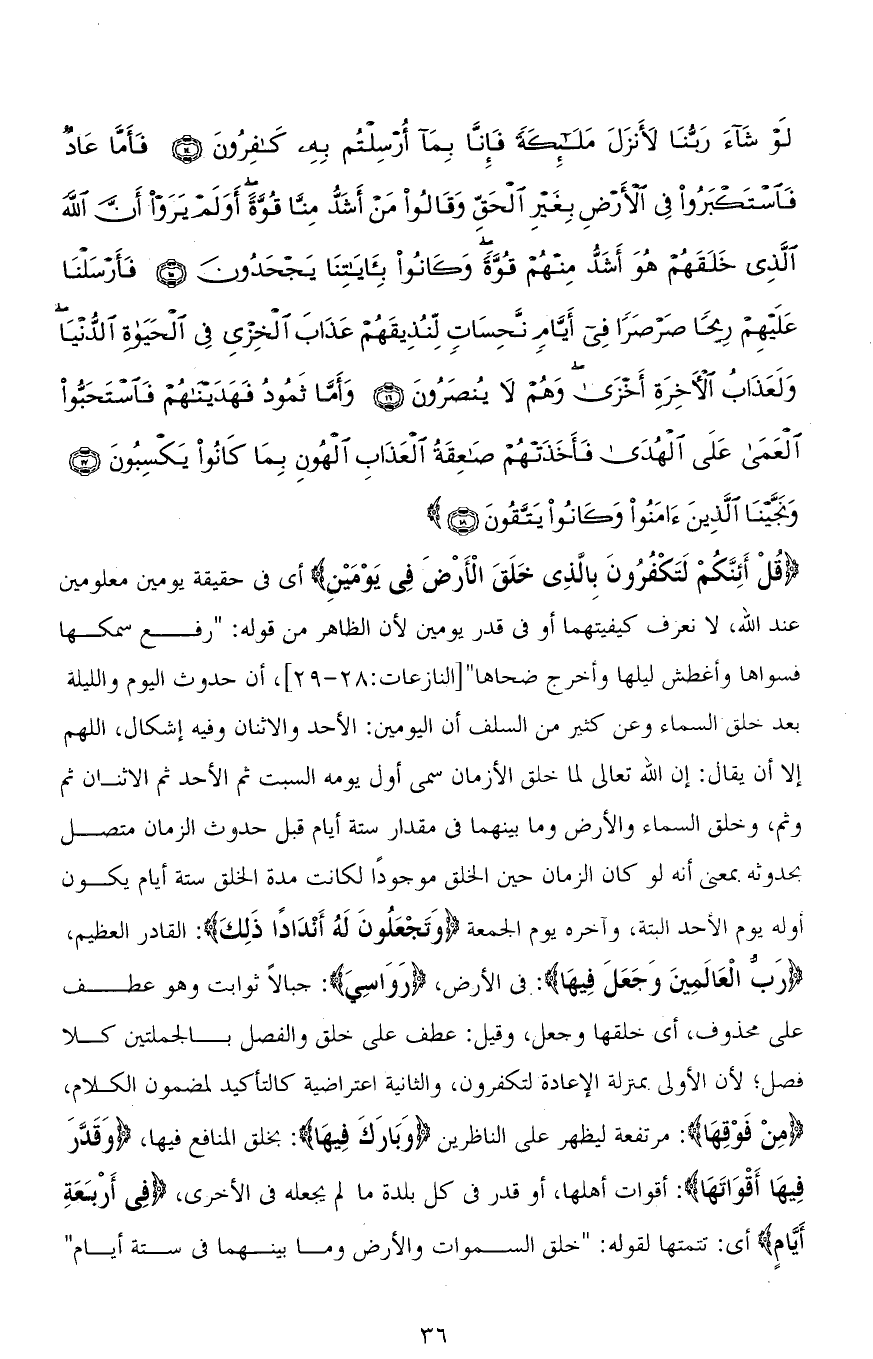 لَوْ شَآءَ رَبُّنَا لَأَنزَلَ مَلَـٰٓئِكَةً فَإِنَّا بِمَآ أُرْسِلْتُم بِهِۦ كَـٰفِرُونَ ﴿١٤﴾ فَأَمَّا عَادٌ
فَٱسْتَكْبَرُوا۟ فِى ٱلْأَرْضِ بِغَيْرِ ٱلْحَقِّ وَقَالُوا۟ مَنْ أَشَدُّ مِنَّا قُوَّةً ۖ أَوَلَمْ يَرَوْا۟ أَنَّ ٱللَّهَ
ٱلَّذِى خَلَقَهُمْ هُوَ أَشَدُّ مِنْهُمْ قُوَّةً ۖ وَكَانُوا۟ بِـَٔايَـٰتِنَا يَجْحَدُونَ ﴿١٥﴾ فَأَرْسَلْنَا
عَلَيْهِمْ رِيحًا صَرْصَرًا فِىٓ أَيَّامٍ نَّحِسَاتٍ لِّنُذِيقَهُمْ عَذَابَ ٱلْخِزْىِ فِى ٱلْحَيَوٰةِ ٱلدُّنْيَا ۖ
وَلَعَذَابُ ٱلْأَخِرَةِ أَخْزَىٰ ۖ وَهُمْ لَا يُنصَرُونَ ﴿١٦﴾ وَأَمَّا ثَمُودُ فَهَدَيْنَـٰهُمْ فَٱسْتَحَبُّوا۟
ٱلْعَمَىٰ عَلَى ٱلْهُدَىٰ فَأَخَذَتْهُمْ صَـٰعِقَةُ ٱلْعَذَابِ ٱلْهُونِ بِمَا كَانُوا۟ يَكْسِبُونَ ﴿١٧﴾
وَنَجَّيْنَا ٱلَّذِينَ ءَامَنُوا۟ وَكَانُوا۟ يَتَّقُونَ ﴿١٨﴾ ﴾
﴿قُلْ أَئِنَّكُمْ لَتَكْفُرُونَ بِالَّذِى خَلَقَ الْأَرْضَ فِى يَوْمَيْنِ﴾ أى فى حقيقة يومين معلومين
عند الله، لا نعرف كيفيتهما أو فى قدر يومين لأن الظاهر من قوله: "رفـــع سمكـــها
فسواها وأغطش ليلها وأخرج ضحاها"[النازعات:٢٨-٢٩]، أن حدوث اليوم والليلة
بعد خلق السماء وعن كثير من السلف أن اليومين: الأحد والاثنان وفيه إشكال، اللهم
إلا أن يقال: إن الله تعالى لما خلق الأزمان سمى أول يومه السبت ثم الأحد ثم الاثنــان ثم
وثم، وخلق السماء والأرض وما بينهما فى مقدار ستة أيام قبل حدوث الزمان متصـــل
بحدوثه بمعنى أنه لو كان الزمان حين الخلق موجودًا لكانت مدة الخلق ستة أيام يكـــون
أوله يوم الأحد البتة، وآخره يوم الجمعة ﴿وَتَجْعَلُونَ لَهُ أَنْدَادًا ذَلِكَ﴾: القادر العظيم،
﴿رَبُّ الْعَالَمِينَ وَجَعَلَ فِيهَا﴾: فى الأرض، ﴿رَوَاسِيَ﴾: جبالاً ثوابت وهو عطـــف
على محذوف، أى خلقها وجعل، وقيل: عطف على خلق والفصل بـــالجملتين كـــلا
فصل؛ لأن الأولى بمنزلة الإعادة لتكفرون، والثانية اعتراضية كالتأكيد لمضمون الكـلام،
﴿مِنْ فَوْقِهَا﴾: مرتفعة ليظهر على الناظرين ﴿وَبَارَكَ فِيهَا﴾: بخلق المنافع فيها، ﴿وَقَدَّرَ
فِيهَا أَقْوَاتَهَا﴾: أقوات أهلها، أو قدر فى كل بلدة ما لم يجعله فى الأخرى، ﴿فِى أَرْبَعَةِ
أَيَّامٍ﴾ أى: تتمتها لقوله: "خلق الســموات والأرض ومــا بينــهما فى ســتة أيــام"
٣٦